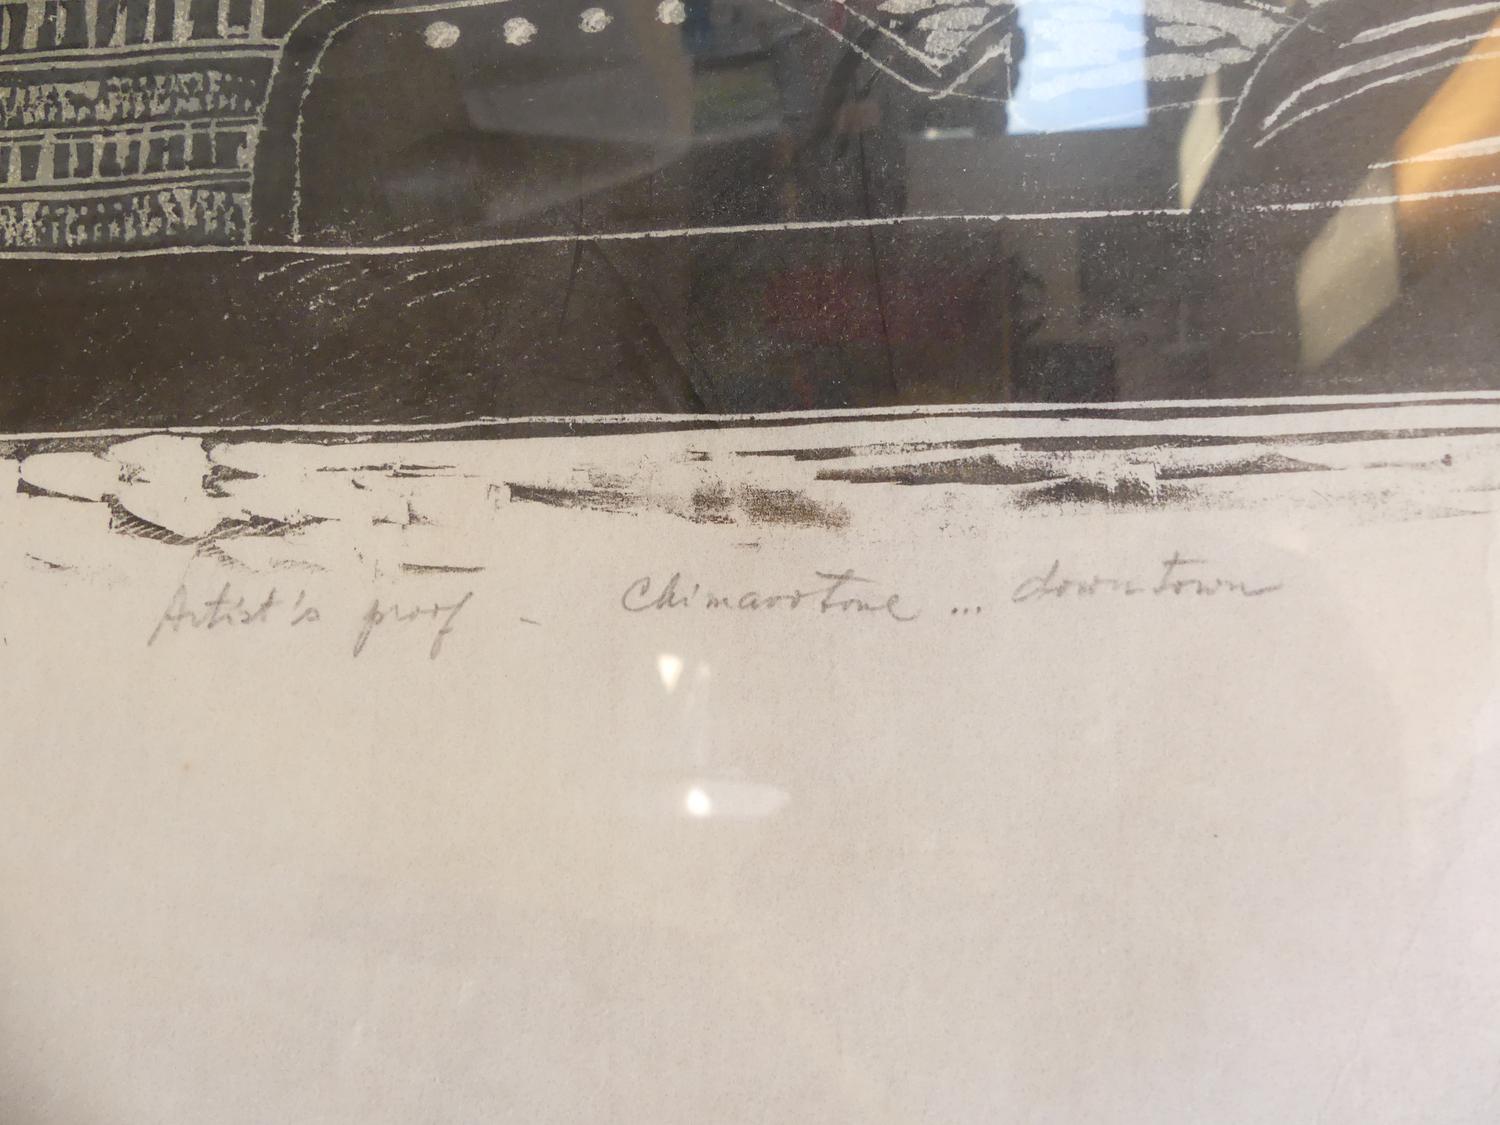 Artist's proof - Chimarotone ... downtown